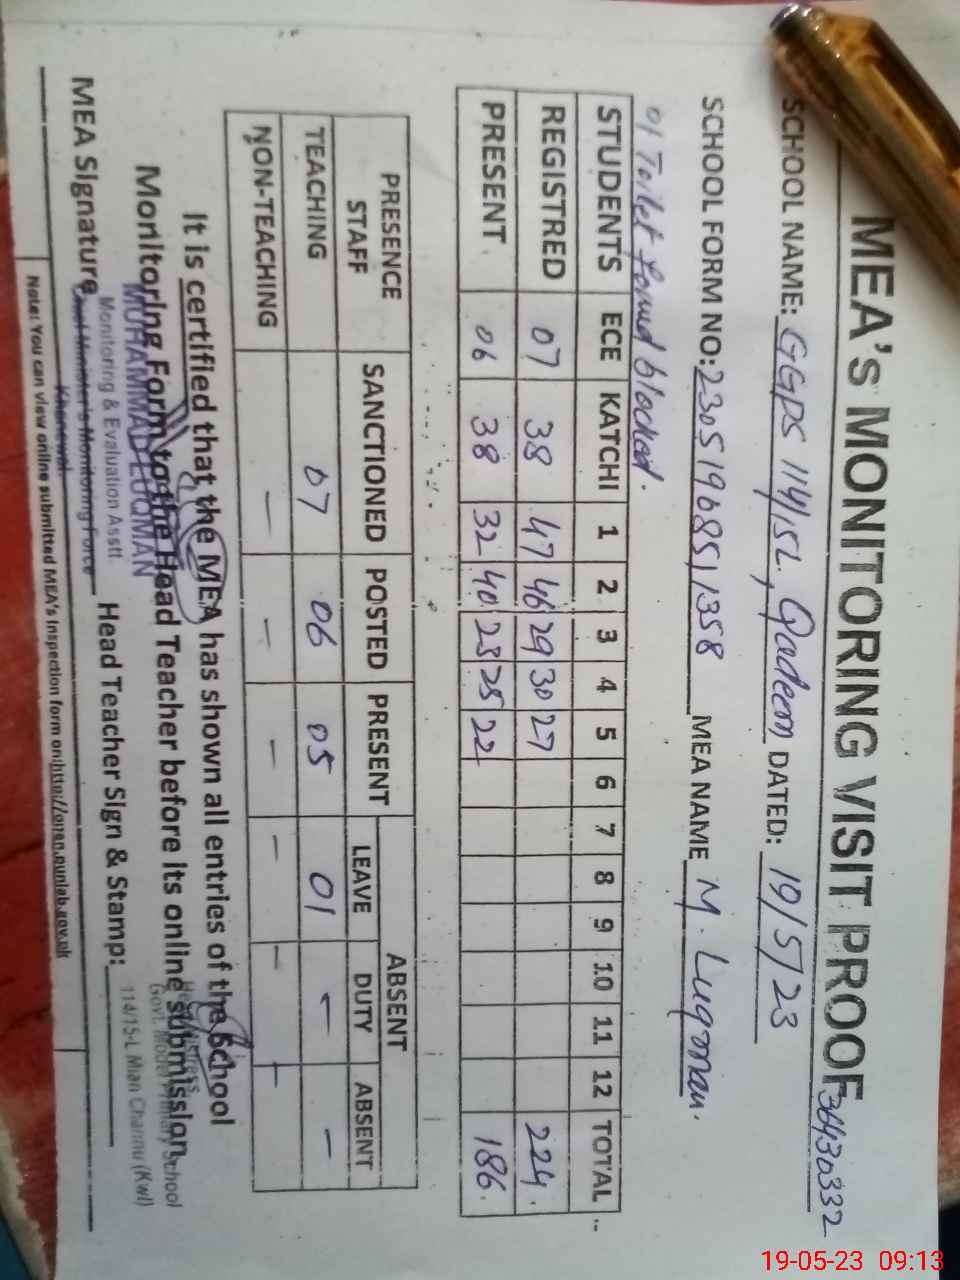 36430332
MEA's MONITORING VISIT PROOF
SCHOOL NAME: GGPS 114/15L, Qadeem DATED: 19/5/23
SCHOOL FORM NO: 2305196851358 MEA NAME M. Luqman.
01 Toilet found blocked.
STUDENTS ECE KATCHI 1 2 3 4 5 6 7 8 9 10 11 12 TOTAL
REGISTRED 07 38 47 46 29 30 27 224.
PRESENT 06 38 32 40 23 25 22 186.
PRESENCE STAFF SANCTIONED POSTED PRESENT ABSENT
LEAVE DUTY ABSENT
TEACHING 07 06 05 01 - -
NON-TEACHING - - - - - -
It is certified that the MEA has shown all entries of the School
Monitoring Form to the Head Teacher before its online submission.
MUHAMMAD LUQMAN
Monitoring & Evaluation Asstt.
Chief Minister's Monitoring Force
Khanewal.
Headmistress
Govt. Model Primary School
114/15-L Mian Channu (Kwl)
MEA Signature Head Teacher Sign & Stamp:
Note: You can view online submitted MEA's inspection form on:http://open.punjab.gov.pk
19-05-23 09:13